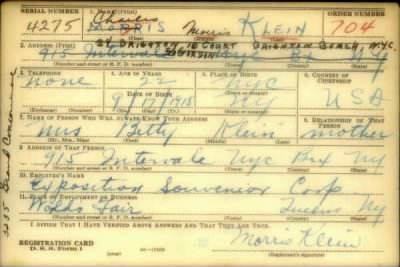 SERIAL NUMBER 1. NAME (Print) ORDER NUMBER
Charles
4275 MORRIS Morris KLEIN 704
(First) (Middle) (Last)
21 BRIGHTON 10 COURT BRIGHTON BEACH, N.Y.C.
2. ADDRESS (Print)
915 Intervale NYC Bx NY
(Number and street or R. F. D. number) (Town) (County) (State)
3. TELEPHONE 4. AGE IN YEARS 5. PLACE OF BIRTH 6. COUNTRY OF CITIZENSHIP
none 22 NYC
DATE OF BIRTH
9 17 1918 NY USA
(Exchange) (Number) (Mo.) (Day) (Yr.) (State or country)
7. NAME OF PERSON WHO WILL ALWAYS KNOW YOUR ADDRESS 8. RELATIONSHIP OF THAT PERSON
Mrs Betty Klein mother
(Mr., Mrs., Miss) (First) (Middle) (Last)
9. ADDRESS OF THAT PERSON
915 Intervale NYC Brx NY
(Number and street or R. F. D. number) (Town) (County) (State)
10. EMPLOYER'S NAME
Exposition Souvenior Corp
11. PLACE OF EMPLOYMENT OR BUSINESS
Worlds Fair Queens NY
(Number and street or R. F. D. number) (Town) (County) (State)
I AFFIRM THAT I HAVE VERIFIED ABOVE ANSWERS AND THAT THEY ARE TRUE.
REGISTRATION CARD
D. S. S. Form 1 16—17105 Morris Klein
(Registrant's signature)
3235 Grand Concourse